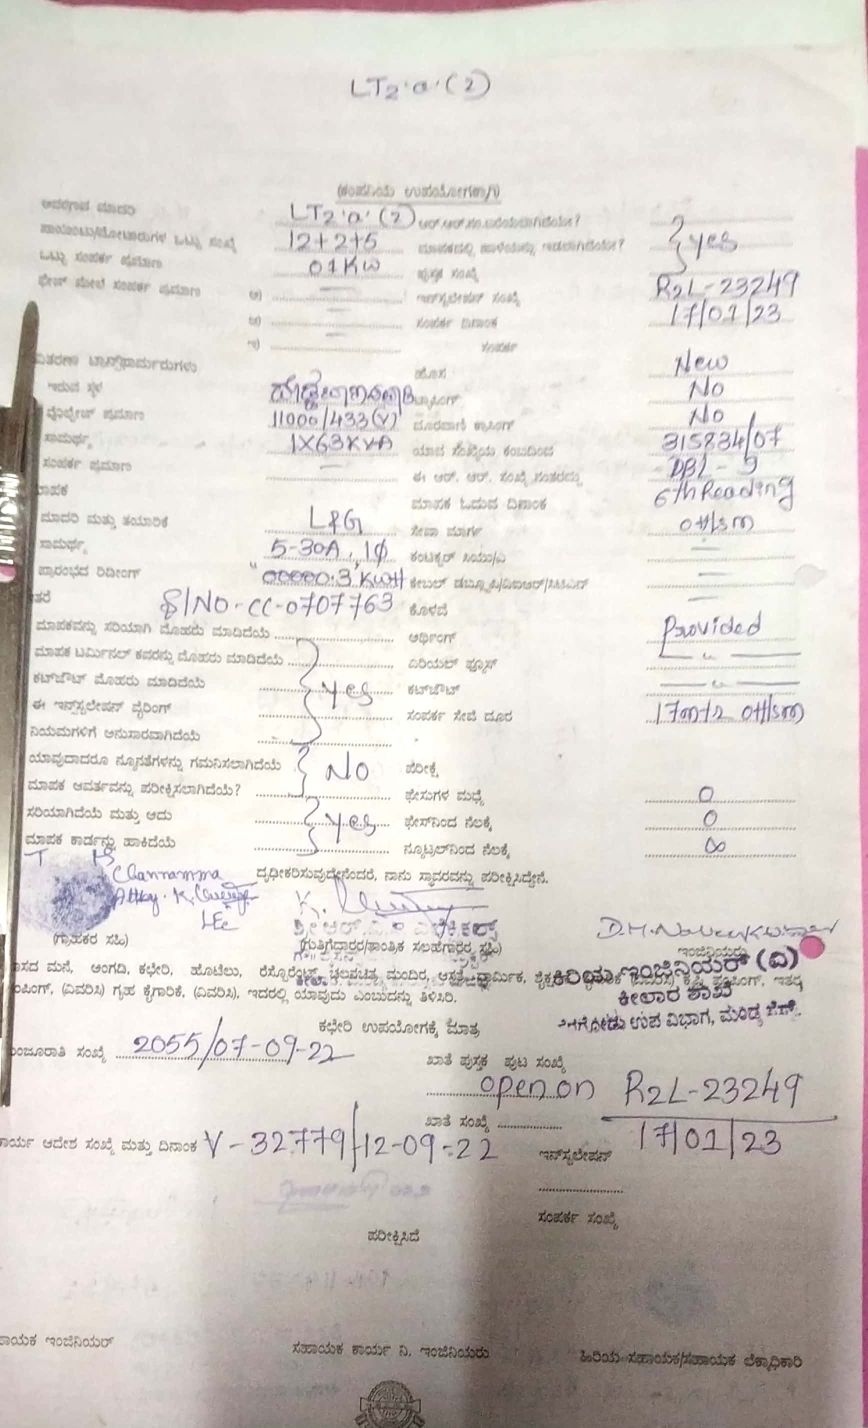 LT2'a'(2)
(ಕಂಪನಿಯ ಉಪಯೋಗಕ್ಕಾಗಿ)
ಆವರಣದ ಮಾದರಿ LT2'a'(2)
12+2+5 ಮಾಪಕದಲ್ಲಿ } yes
ಒಟ್ಟು ಸಂಪರ್ಕ ಪ್ರಮಾಣ 01Kw ಪುಸ್ತಕ ಸಂಖ್ಯೆ
ಫೇಸ್ ಮೇಲೆ ಸಂಪರ್ಕ ಪ್ರಮಾಣ ಅ) ಇನ್‌ಸ್ಟಲೇಷನ್ ಸಂಖ್ಯೆ R2L-23249
ಆ) ಸಂಪರ್ಕ ದಿನಾಂಕ 17/01/23
ಇ) ಸಂಪರ್ಕ
ವಿತರಣಾ ಟ್ರಾನ್ಸ್‌ಫಾರ್ಮರುಗಳು ಹೊಸ New
ಇರುವ ಸ್ಥಳ No
ವೋಲ್ಟೇಜ್ ಪ್ರಮಾಣ 11000/433(V) No
ಸಾಮರ್ಥ್ಯ 1X63KVA ಯಾವ ಸಂಖ್ಯೆಯ ಕಂಬದಿಂದ 315834/07
ಸಂಪರ್ಕ ಪ್ರಮಾಣ ಈ ಆರ್. ಆರ್. ಸಂಖ್ಯೆ ನಂತರದ್ದು DBL-9
ಮಾಪಕ ಓದುವ ದಿನಾಂಕ 6th Reading
ಮಾದರಿ ಮತ್ತು ತಯಾರಿಕೆ L&G ಸೇವಾ ಮಾರ್ಗ
ಸಾಮರ್ಥ್ಯ 5-30A, 1Ø
ಪ್ರಾರಂಭದ ರಿಡೀಂಗ್ 00000.3 KWH
S/NO-CC-0707763 ಕೊಳವೆ
ಮಾಪಕವನ್ನು ಸರಿಯಾಗಿ ಮೊಹರು ಮಾಡಿದೆಯೆ ಅರ್ಥಿಂಗ್ Provided
ಮಾಪಕ ಟರ್ಮಿನಲ್ ಕವರನ್ನು ಮೊಹರು ಮಾಡಿದೆಯೆ ಏರಿಯಲ್ ಫ್ಯೂಸ್ — " —
ಕಟ್‌ಔಟ್ ಮೊಹರು ಮಾಡಿದೆಯೆ } yes ಕಟ್‌ಔಟ್ — " —
ಈ ಇನ್‌ಸ್ಟಲೇಷನ್ ವೈರಿಂಗ್ ಸಂಪರ್ಕ ಸೇವೆ ದೂರ
ನಿಯಮಗಳಿಗೆ ಅನುಸಾರವಾಗಿದೆಯೆ
ಯಾವುದಾದರೂ ನ್ಯೂನತೆಗಳನ್ನು ಗಮನಿಸಲಾಗಿದೆಯೆ } NO ಪರೀಕ್ಷೆ
ಮಾಪಕ ಆವರ್ತವನ್ನು ಪರೀಕ್ಷಿಸಲಾಗಿದೆಯೆ? ಫೇಸುಗಳ ಮಧ್ಯೆ 0
ಸರಿಯಾಗಿದೆಯೆ ಮತ್ತು ಅದು } yes ಫೇಸ್‌ನಿಂದ ನೆಲಕ್ಕೆ 0
ಮಾಪಕ ಕಾರ್ಡನ್ನು ಹಾಕಿದೆಯೆ ನ್ಯೂಟ್ರಲ್‌ನಿಂದ ನೆಲಕ್ಕೆ ∞
Channamma ದೃಢೀಕರಿಸುವುದೇನೆಂದರೆ, ನಾನು ಸ್ಥಾವರವನ್ನು ಪರೀಕ್ಷಿಸಿದ್ದೇನೆ.
(ಗ್ರಾಹಕರ ಸಹಿ) (ಗುತ್ತಿಗೆದಾರರ/ತಾಂತ್ರಿಕ ಸಲಹೆಗಾರರ ಸಹಿ) ಇಂಜಿನಿಯರು
ಕಿರಿಯ ಇಂಜಿನಿಯರ್ (ವಿ)
ವಾಸದ ಮನೆ, ಅಂಗಡಿ, ಕಛೇರಿ, ಹೊಟೆಲು, ರೆಸ್ಟೋರೆಂಟ್, ಚಲನಚಿತ್ರ ಮಂದಿರ, ಆಸ್ಪತ್ರೆ, ಧಾರ್ಮಿಕ,
ಪಂಪಿಂಗ್, (ವಿವರಿಸಿ) ಗೃಹ ಕೈಗಾರಿಕೆ, (ವಿವರಿಸಿ), ಇದರಲ್ಲಿ ಯಾವುದು ಎಂಬುದನ್ನು ತಿಳಿಸಿರಿ.
ಕೀಲಾರ ಶಾಖೆ
ಕಛೇರಿ ಉಪಯೋಗಕ್ಕೆ ಮಾತ್ರ ಉಪ ವಿಭಾಗ, ಮಂಡ್ಯ
ಮಂಜೂರಾತಿ ಸಂಖ್ಯೆ 2055/07-09-22 ಖಾತೆ ಪುಸ್ತಕ ಪುಟ ಸಂಖ್ಯೆ
open on R2L-23249
ಖಾತೆ ಸಂಖ್ಯೆ
ಕಾರ್ಯ ಆದೇಶ ಸಂಖ್ಯೆ ಮತ್ತು ದಿನಾಂಕ V-32779/12-09-22 ಇನ್‌ಸ್ಟಲೇಷನ್ 17/01/23
ಸಂಪರ್ಕ ಸಂಖ್ಯೆ
ಪರೀಕ್ಷಿಸಿದೆ
ಸಹಾಯಕ ಇಂಜಿನಿಯರ್ ಸಹಾಯಕ ಕಾರ್ಯ ನಿ. ಇಂಜಿನಿಯರು ಹಿರಿಯ ಸಹಾಯಕ/ಸಹಾಯಕ ಲೆಕ್ಕಾಧಿಕಾರಿ